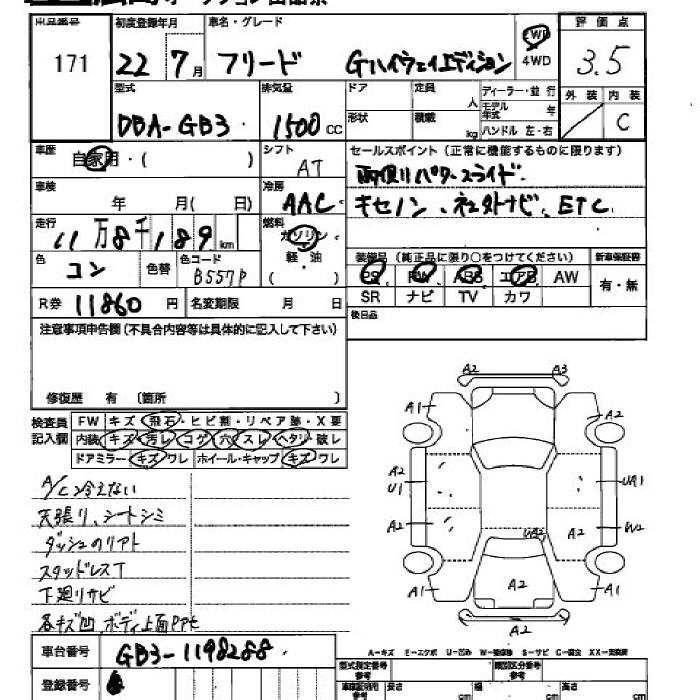 出品番号 初度登録年月 車名・グレード 評価点
171 22 7月 フリード Gハイウェイエディション 2WD 4WD 3.5
型式 排気量 ドア 定員 人 ディーラー・並行 外装 内装
DBA-GB3 1500cc 形状 積載 kg モデル年式 年 ハンドル 左・右 C
車歴 自家用・( ) シフト AT セールスポイント(正常に機能するものに限ります)
両側パワースライド
車検 年 月( 日) 冷房 AAC キセノン、ETC
走行 11万8千189km 燃料 ガソリン 軽・油 ( )
装備品(純正品に限り○をつけてください) 新車保証書
色 コン 色替 色コード B557P PS PW ABS エアB AW 有・無
SR ナビ TV カワ
R券 11860円 名変期限 月 日 後日品
注意事項申告欄(不具合内容等は具体的に記入して下さい)
修復歴 有 〔箇所 〕
検査員記入欄 FW キズ・飛石・ヒビ割・リペア跡・X要
内装 キズ・汚レ・コゲ・穴・スレ・ヘタリ・破レ
ドアミラー キズ・ワレ ホイール・キャップ キズ・ワレ
A/C冷えない
天張り、シートシミ
ダッシュのリアト
スタッドレスT
下廻リサビ
各キズ凹 ボディ上面
A2 A3
A1 A2
A2 U1 UA1
A2 UA2 A2 W2
A1 A2 A1
A2
A-キズ E-エクボ U-凹ミ S-サビ C-腐食
車台番号 GB3-1198288
登録番号
型式指定番号 参考 類別区分番号 参考
長さ cm 幅 cm 高さ cm